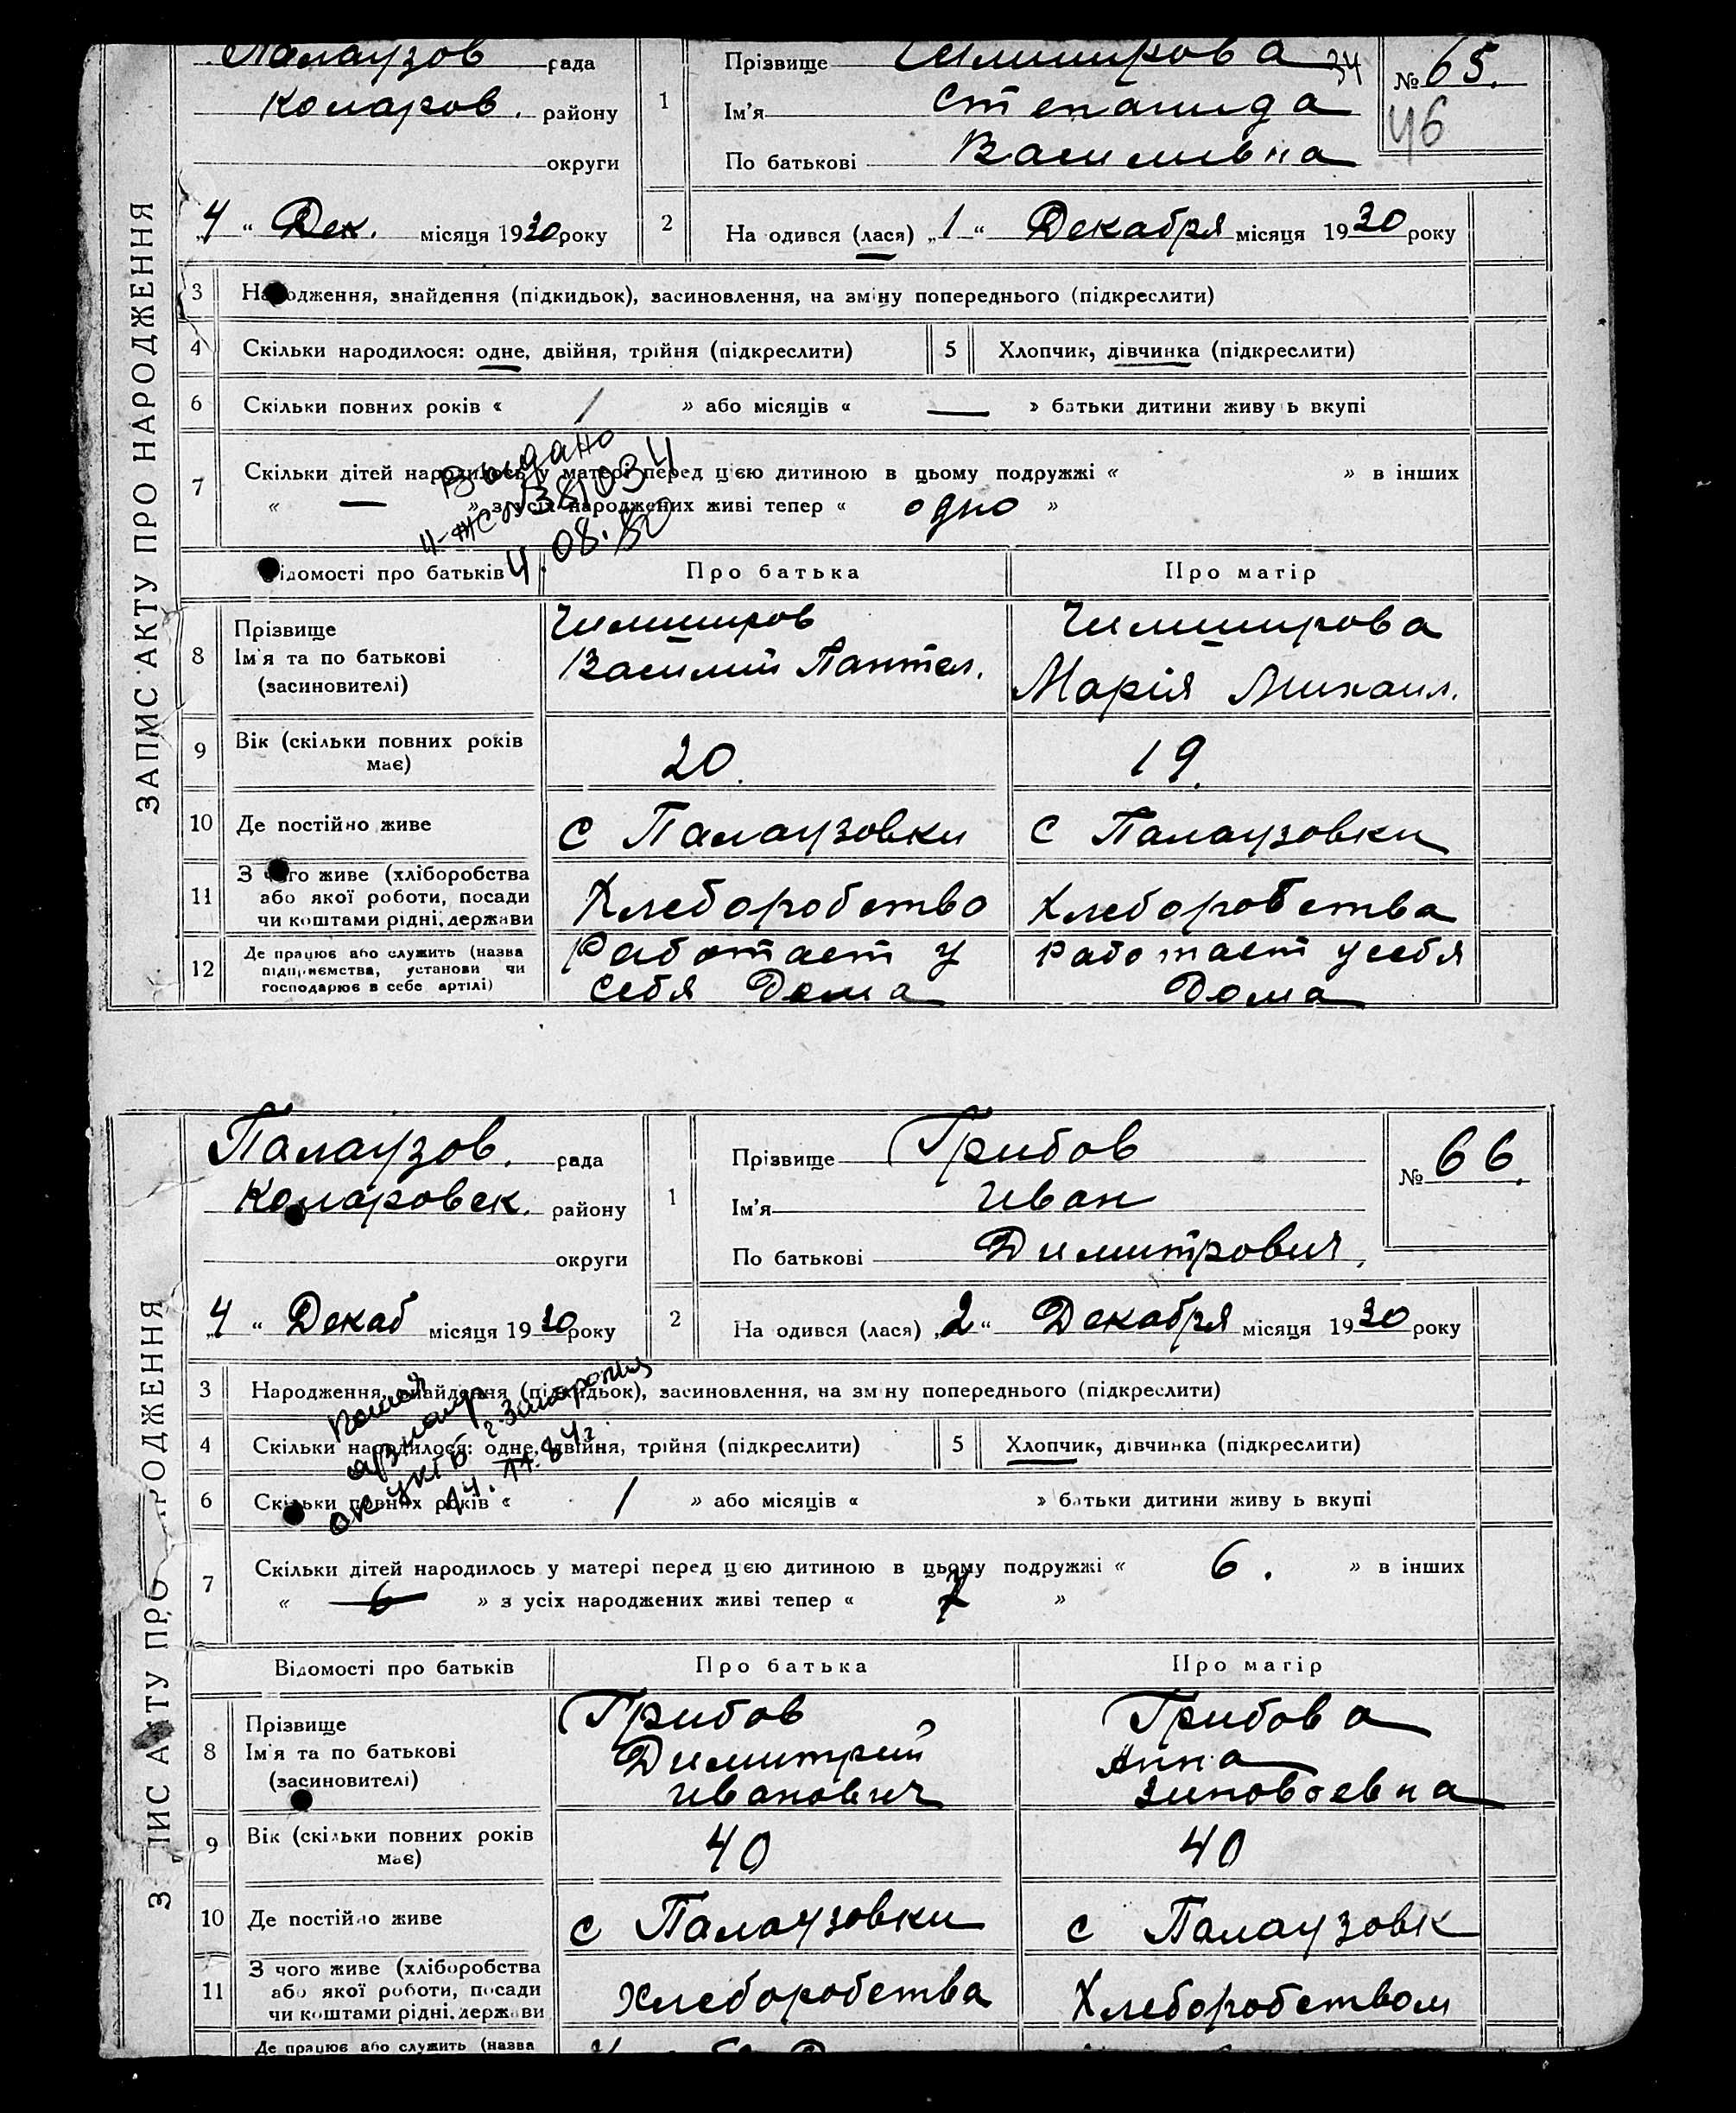 ЗАПИС АКТУ ПРО НАРОДЖЕННЯ
Палаузов рада
Коларов. району
округи
„4“ Дек. місяця 1930 року
1
Прізвище Чимширова 34
Ім'я Степанида
По батькові Василивна
№ 65.
46
2
На одився (лася) „1“ Декабря місяця 1930 року
3 На одження, знайдення (підкидьок), засиновлення, на зміну попереднього (підкреслити)
4 Скільки народилося: одне, двійня, трійня (підкреслити)
5 Хлопчик, дівчинка (підкреслити)
6 Скільки повних років « / » або місяців « — » батьки дитини живу ь вкупі
7 Скільки дітей народилось у матері перед цією дитиною в цьому подружжі « » в інших
« — » з усіх народжених живі тепер « одно »
Выдано
4.08.80
ідомості про батьків
Про батька
Про матір
8 Прізвище
Ім'я та по батькові
(засиновителі)
Чимширов
Василий Пантел.
Чимширова
Марія Михаил.
9 Вік (скільки повних років
має)
20.
19.
10 Де постійно живе
с Палаузовки
с Палаузовки
11 З чого живе (хліборобства
або якої роботи, посади
чи коштами рідні, держави
Хлеборобство
Хлеборобства
12 Де працює або служить (назва
підприємства, установи чи
господарює в себе артілі)
Работает у
себя Дома
Работает у себя
Дома
З ПИС АКТУ ПРО РОДЖЕННЯ
Палаузов. рада
Коларовск. району
округи
„4“ Декаб місяця 1930 року
1
Прізвище Грибов
Ім'я Иван
По батькові Димитрович,
№ 66.
2
На одився (лася) „2“ Декабря місяця 1930 року
3 Народження, знайдення (підкидьок), засиновлення, на зміну попереднього (підкреслити)
4 Скільки народилося: одне, двійня, трійня (підкреслити)
5 Хлопчик, дівчинка (підкреслити)
6 Скільки повних років « / » або місяців « » батьки дитини живу ь вкупі
7 Скільки дітей народилось у матері перед цією дитиною в цьому подружжі « 6. » в інших
« 6 » з усіх народжених живі тепер « »
г. Запорожья
14.11.84г
Відомості про батьків
Про батька
Про матір
8 Прізвище
Ім'я та по батькові
(засиновителі)
Грибов
Димитрий
Иванович
Грибова
Анна
Зиновьевна
9 Вік (скільки повних років
має)
40
40
10 Де постійно живе
с Палаузовки
с Палаузовк
11 З чого живе (хліборобства
або якої роботи, посади
чи коштами рідні, держави
Хлеборобства
Хлеборобством
Де працює або служить (назва